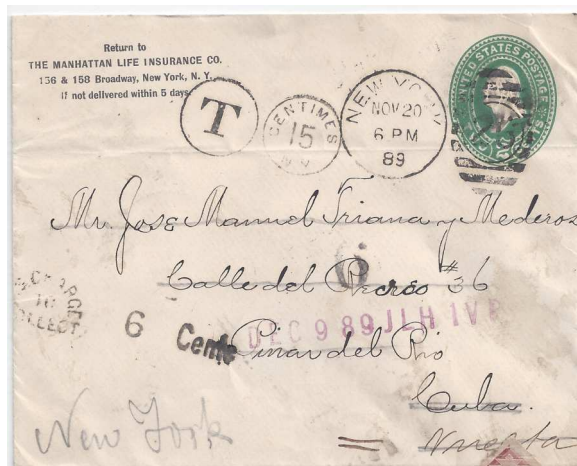 Return to
THE MANHATTAN LIFE INSURANCE CO.
156 & 158 Broadway, New York, N. Y.
If not delivered within 5 days
T
CENTIMES
15
N.Y.
NEW YORK
NOV 20
6 PM
89
UNITED STATES POSTAGE
TWO CENTS
Mr. Jose Manuel Triana y Mederos
Calle del Recreo #36
CHARGE
TO
COLLECT
6 Cents
DEC 9 89
Pinar del Rio
Cuba.
New York